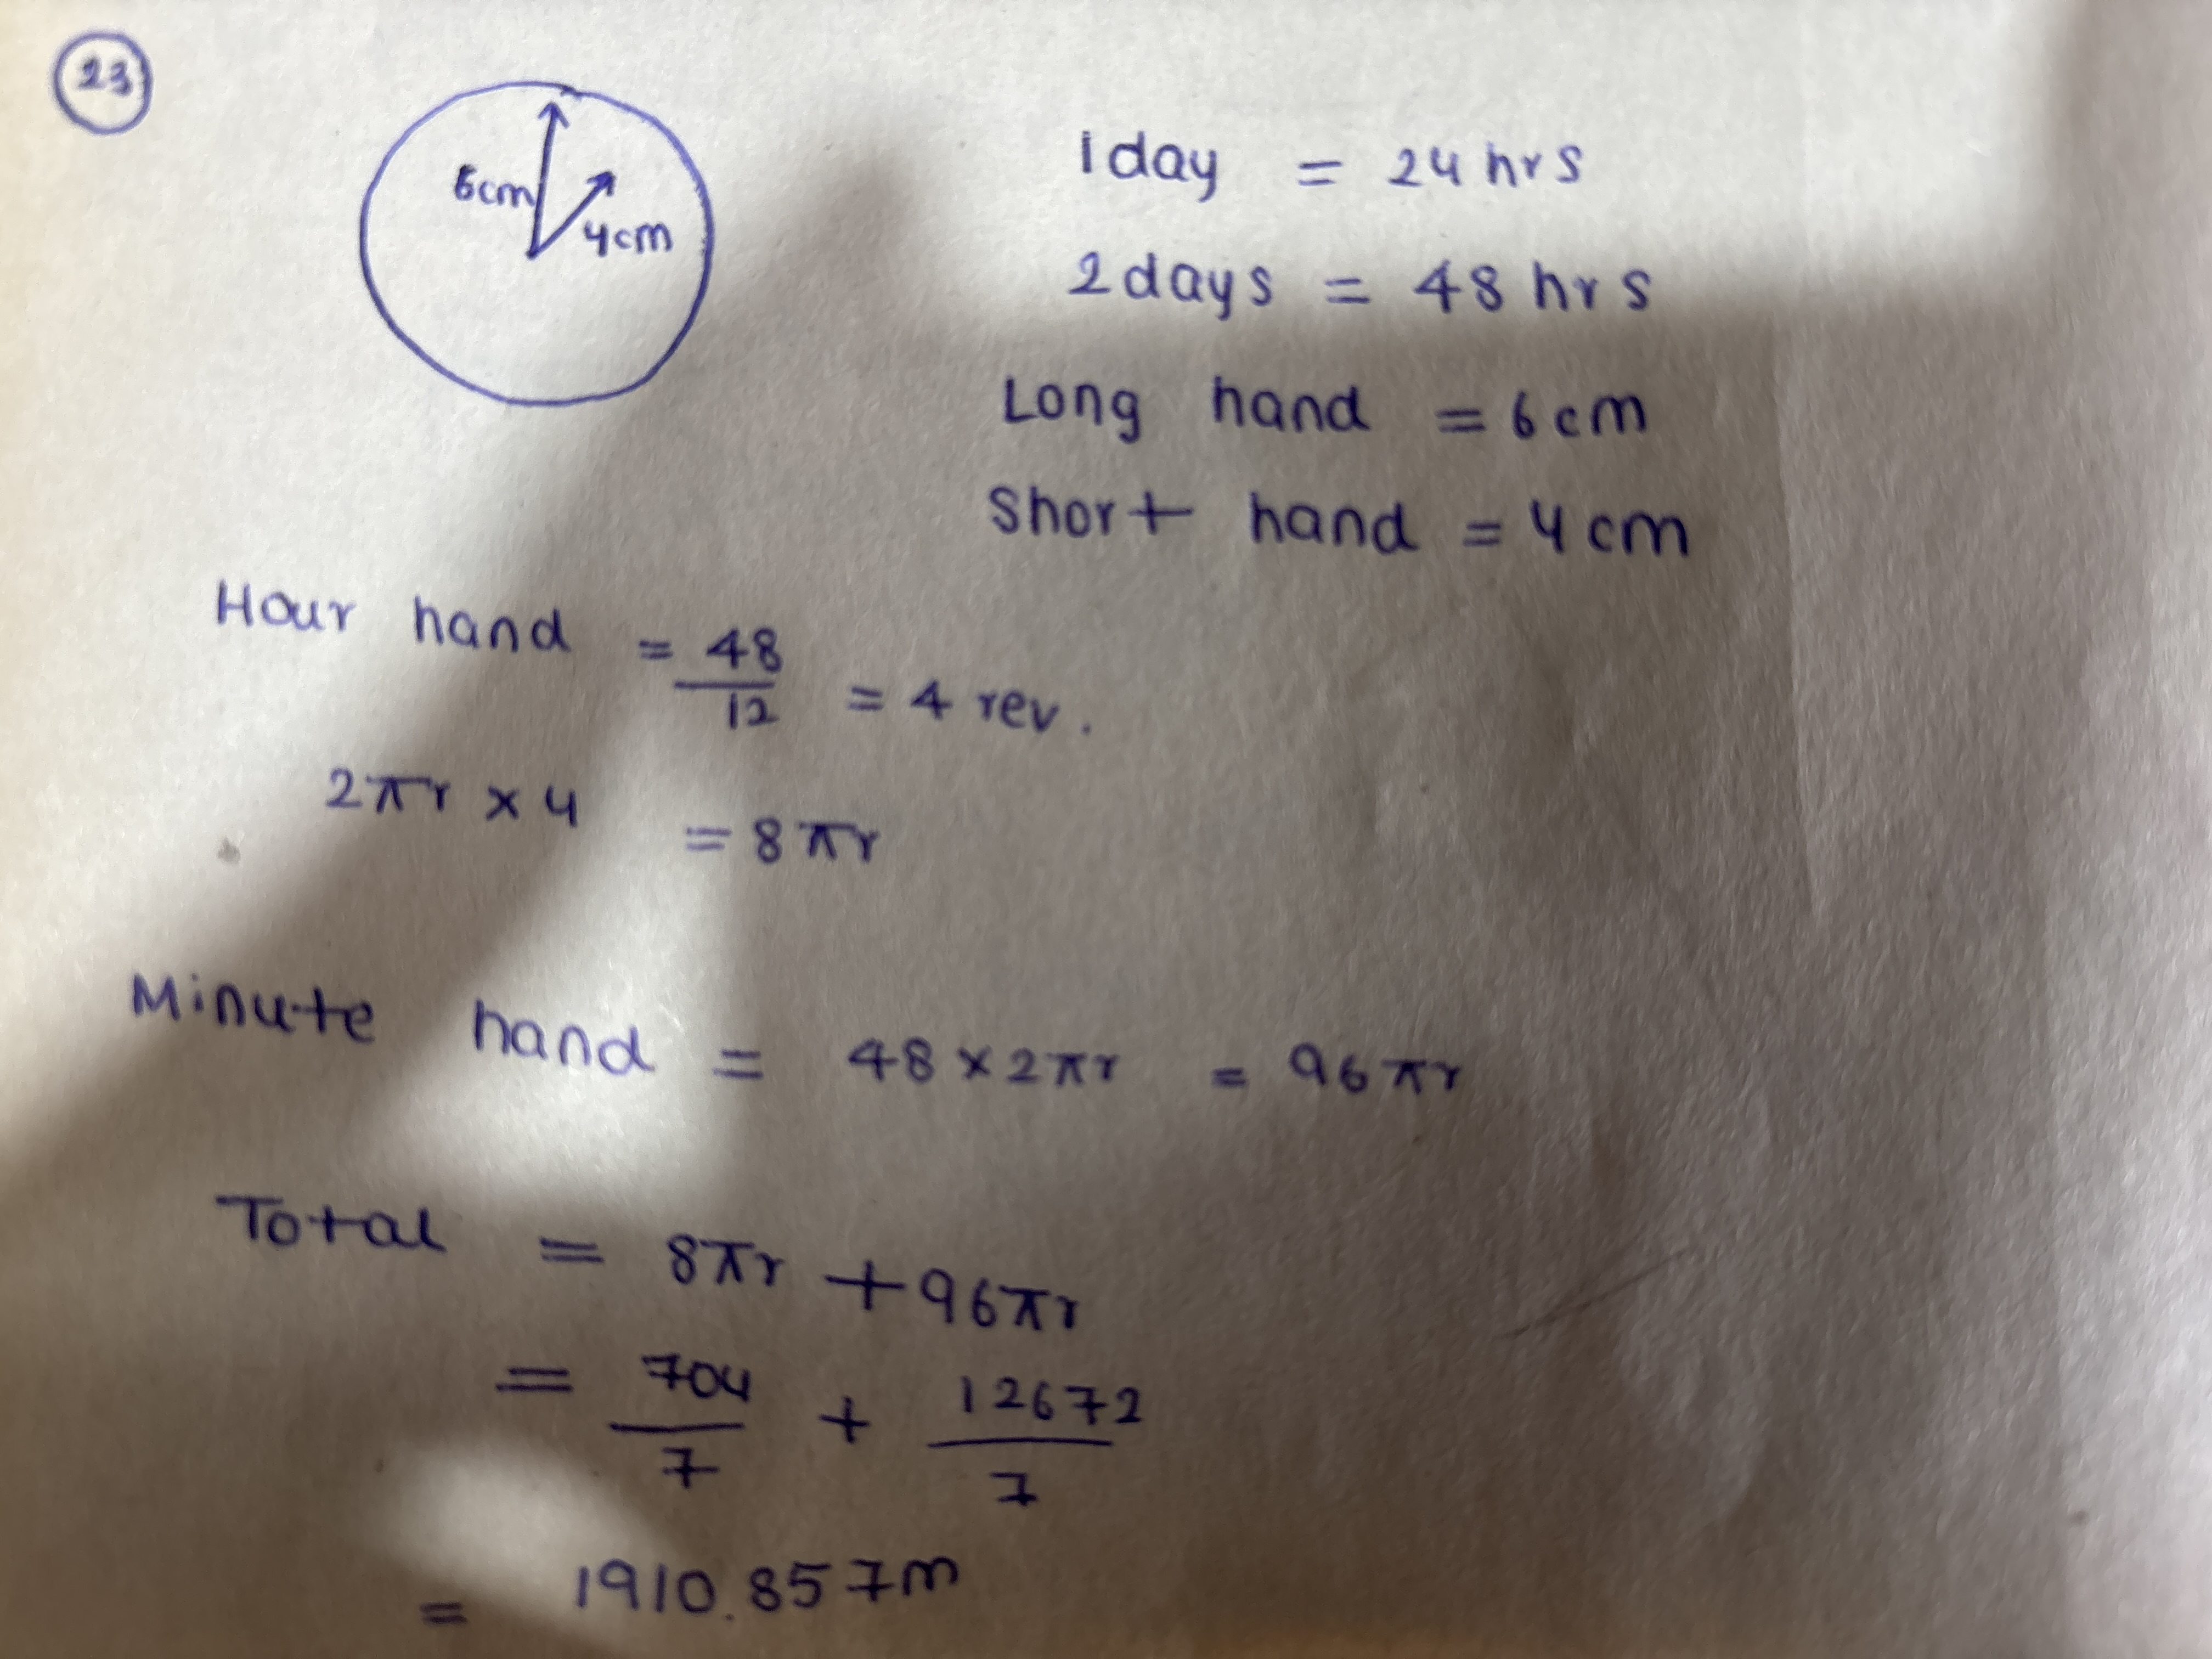 23
6cm
4cm
1 day = 24 hrs
2 days = 48 hrs
Long hand = 6 cm
Short hand = 4 cm
Hour hand = 48/12 = 4 rev.
2πr × 4 = 8πr
Minute hand = 48 × 2πr = 96πr
Total = 8πr + 96πr
= 704/7 + 12672/7
= 1910.857m